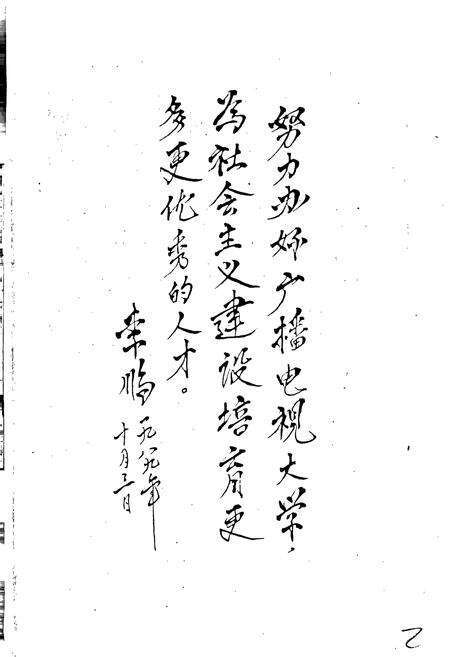 努力办好广播电视大学，
为社会主义建设培育更
多更优秀的人才。
李鹏
一九八九年
十月二日
乙